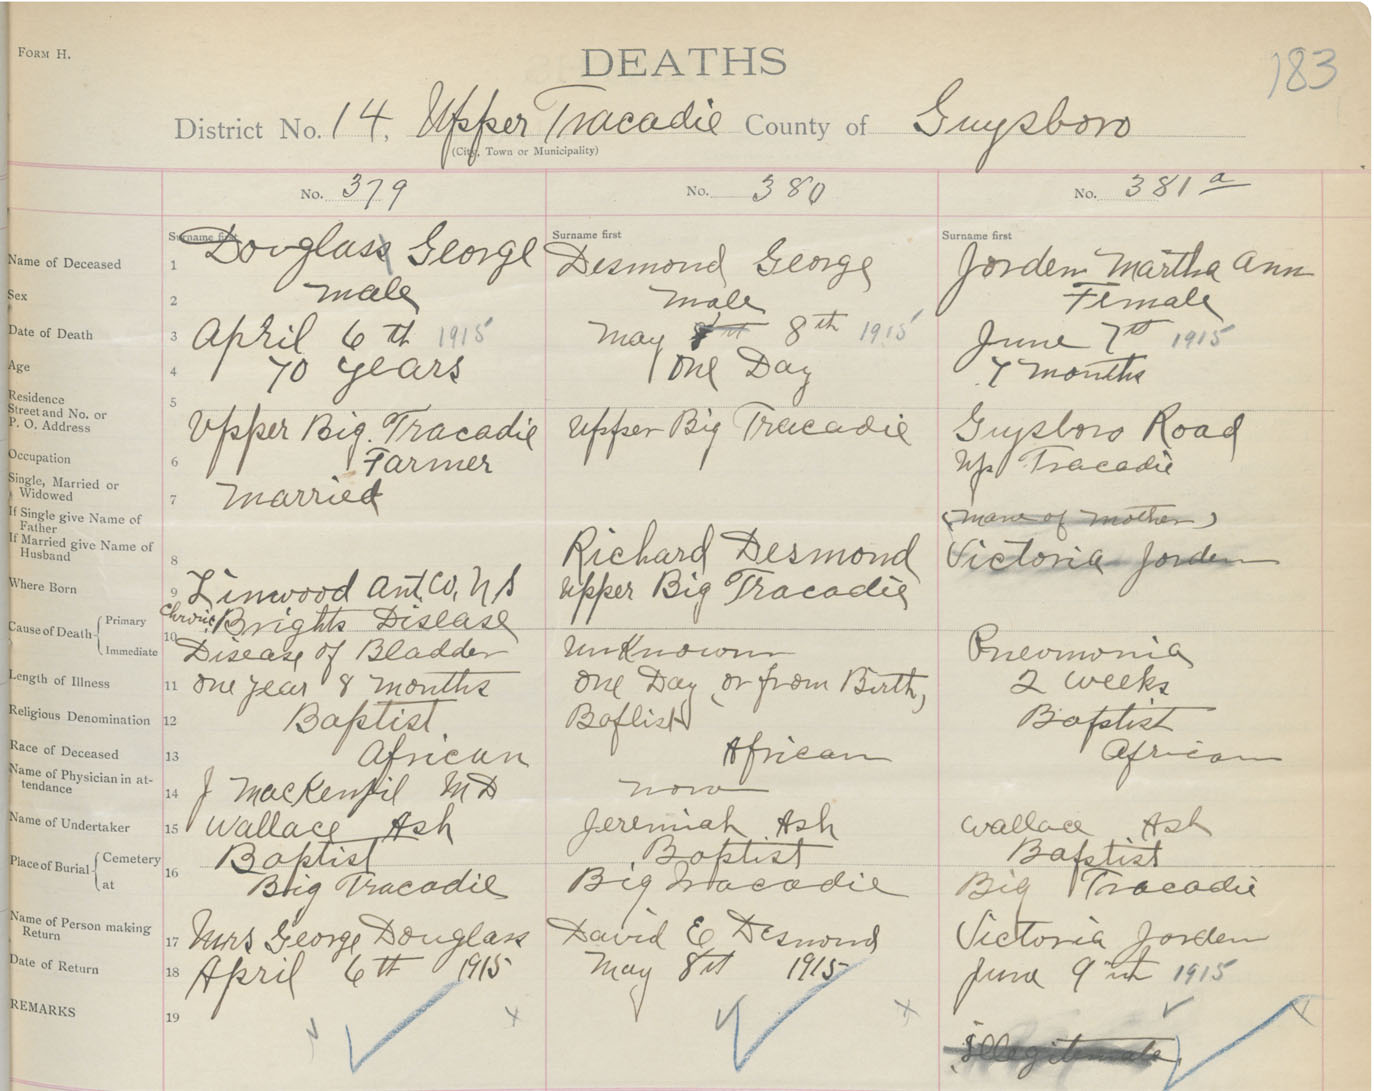 Form H.
DEATHS
183
District No. 14, Upper Tracadie County of Guysboro
(City, Town or Municipality)
No. 379 No. 380 No. 381 a
Surname first Surname first Surname first
Name of Deceased 1 Douglass George Desmond George Jorden Martha Ann
Sex 2 male male Female
Date of Death 3 April 6th 1915 May 8th 1915 June 7th 1915
Age 4 70 years One Day 7 months
Residence Street and No. or P. O. Address 5 Upper Big Tracadie Upper Big Tracadie Guysboro Road
Occupation 6 Farmer Up Tracadie
Single, Married or Widowed 7 Married
If Single give Name of Father (Mane of Mother)
If Married give Name of Husband 8 Richard Desmond Victoria Jorden
Where Born 9 Linwood Ant. Co, N S Upper Big Tracadie
Cause of Death Primary Chronic Brights Disease
Immediate 10 Disease of Bladder Unknown Pneumonia
Length of Illness 11 One year 8 months One Day (or from Birth) 2 weeks
Religious Denomination 12 Baptist Baptist Baptist
Race of Deceased 13 African African African
Name of Physician in attendance 14 J MacKenzil MD now
Name of Undertaker 15 Wallace Ash Jeremiah Ash Wallace Ash
Place of Burial Cemetery Baptist Baptist Baptist
at 16 Big Tracadie Big Tracadie Big Tracadie
Name of Person making Return 17 Mrs George Douglass David E Desmond Victoria Jorden
Date of Return 18 April 6th 1915 May 8th 1915 June 9th 1915
REMARKS 19 Illegitemate